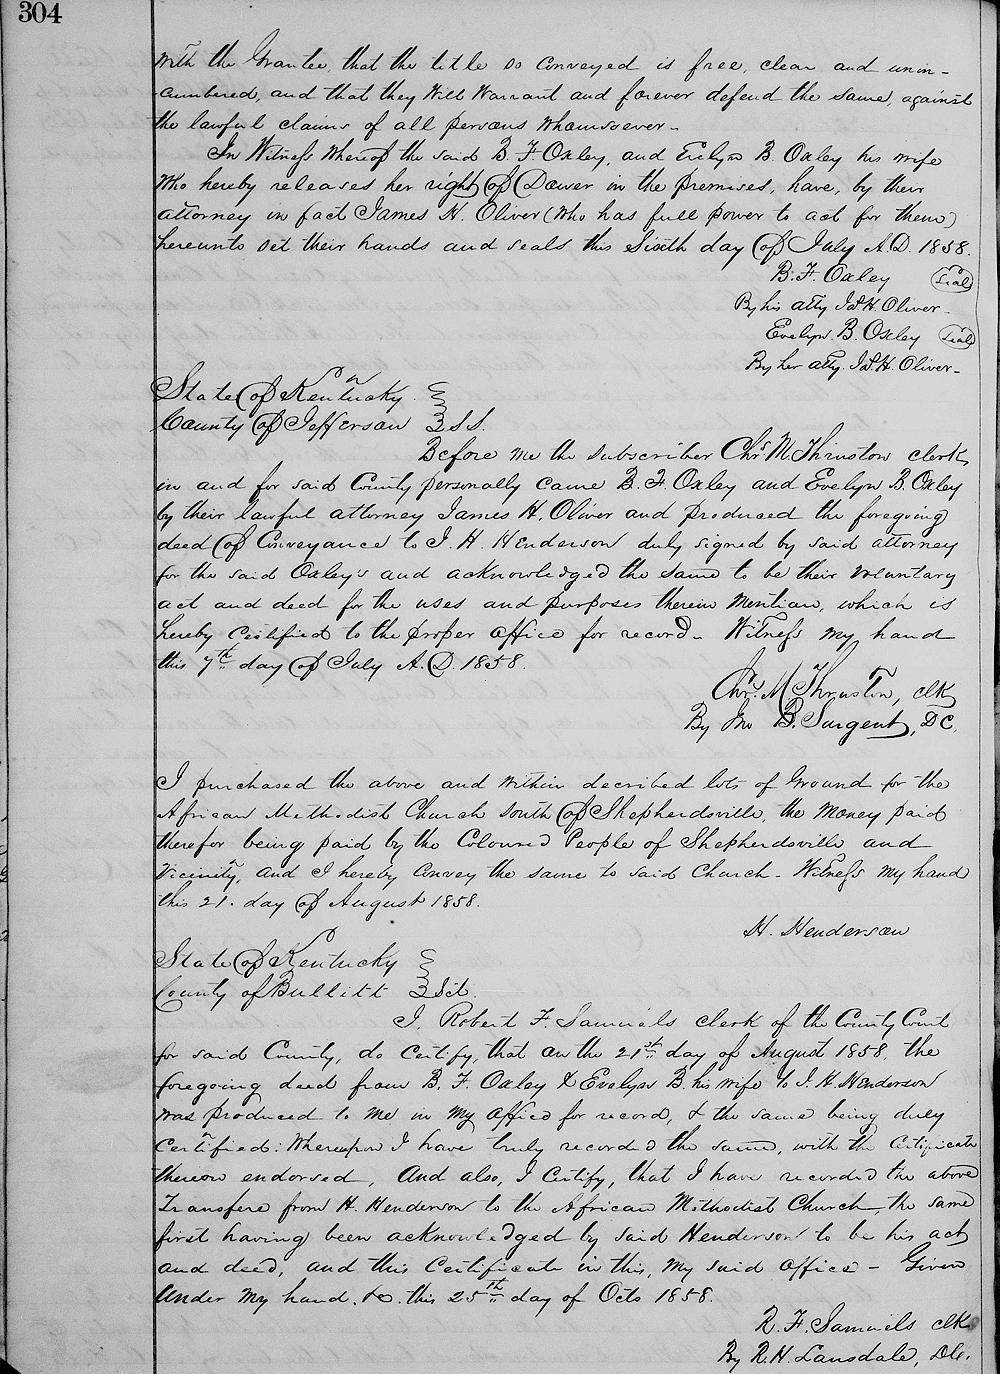 304
with the Grantee, that the title so conveyed is free, clear and unin-
-cumbered, and that they Will Warrant and forever defend the same, against
the lawful claims of all persons whomsoever.
In Witness Whereof the said B. F. Oxley, and Evelyn B. Oxley his wife
who hereby releases her right of Dower in the premises, have, by their
attorney in fact James H. Oliver (who has full power to act for them)
hereunto set their hands and seals this Sixth day of July A.D. 1858.
B. F. Oxley (Seal)
By his atty Js. H. Oliver.
Evelyn. B. Oxley (Seal)
By her atty. Js. H. Oliver-
State of Kentucky.
County of Jefferson } SS.
Before me the subscriber Chs. M. Thruston clerk
in and for said County personally came B. F. Oxley and Evelyn B. Oxley
by their lawful attorney James H. Oliver and produced the foregoing
deed of Conveyance to J. H. Henderson duly signed by said attorney
for the said Oxley's and acknowledged the same to be their voluntary
act and deed for the uses and purposes therein mention, which is
hereby certified to the proper office for record. Witness my hand
this 7th day of July A.D. 1858.
Chs. M. Thruston, clk
By Jno B. Sargent, DC.
I purchased the above and within decribed lots of Ground for the
African Methodist Church South of Shepherdsville, the money paid
therefor being paid by the Coloured People of Shepherdsville and
Vicinity, and I hereby convey the same to said Church - Witness my hand
this 21. day of August 1858.
H. Henderson
State of Kentucky
County of Bullitt } Sct.
I, Robert F. Samuels clerk of the County Court
for said County, do certify, that on the 21st day of August 1858, the
foregoing deed from B. F. Oxley & Evelyn B. his wife to J. H. Henderson
was produced to me in my office for record, & the same being duly
certified: Whereupon I have truly recorded the same, with the certificate
thereon endorsed, And also, I certify, that I have recorded the above
Transfere from H. Henderson to the African Methodist Church, the same
first having been acknowledged by said Henderson to be his act
and deed, and this Certificate in this, my said office - Given
Under my hand. &c. this 25th day of Octo 1858.
R. F. Samuels clk
By R. H. Lansdale, DC.